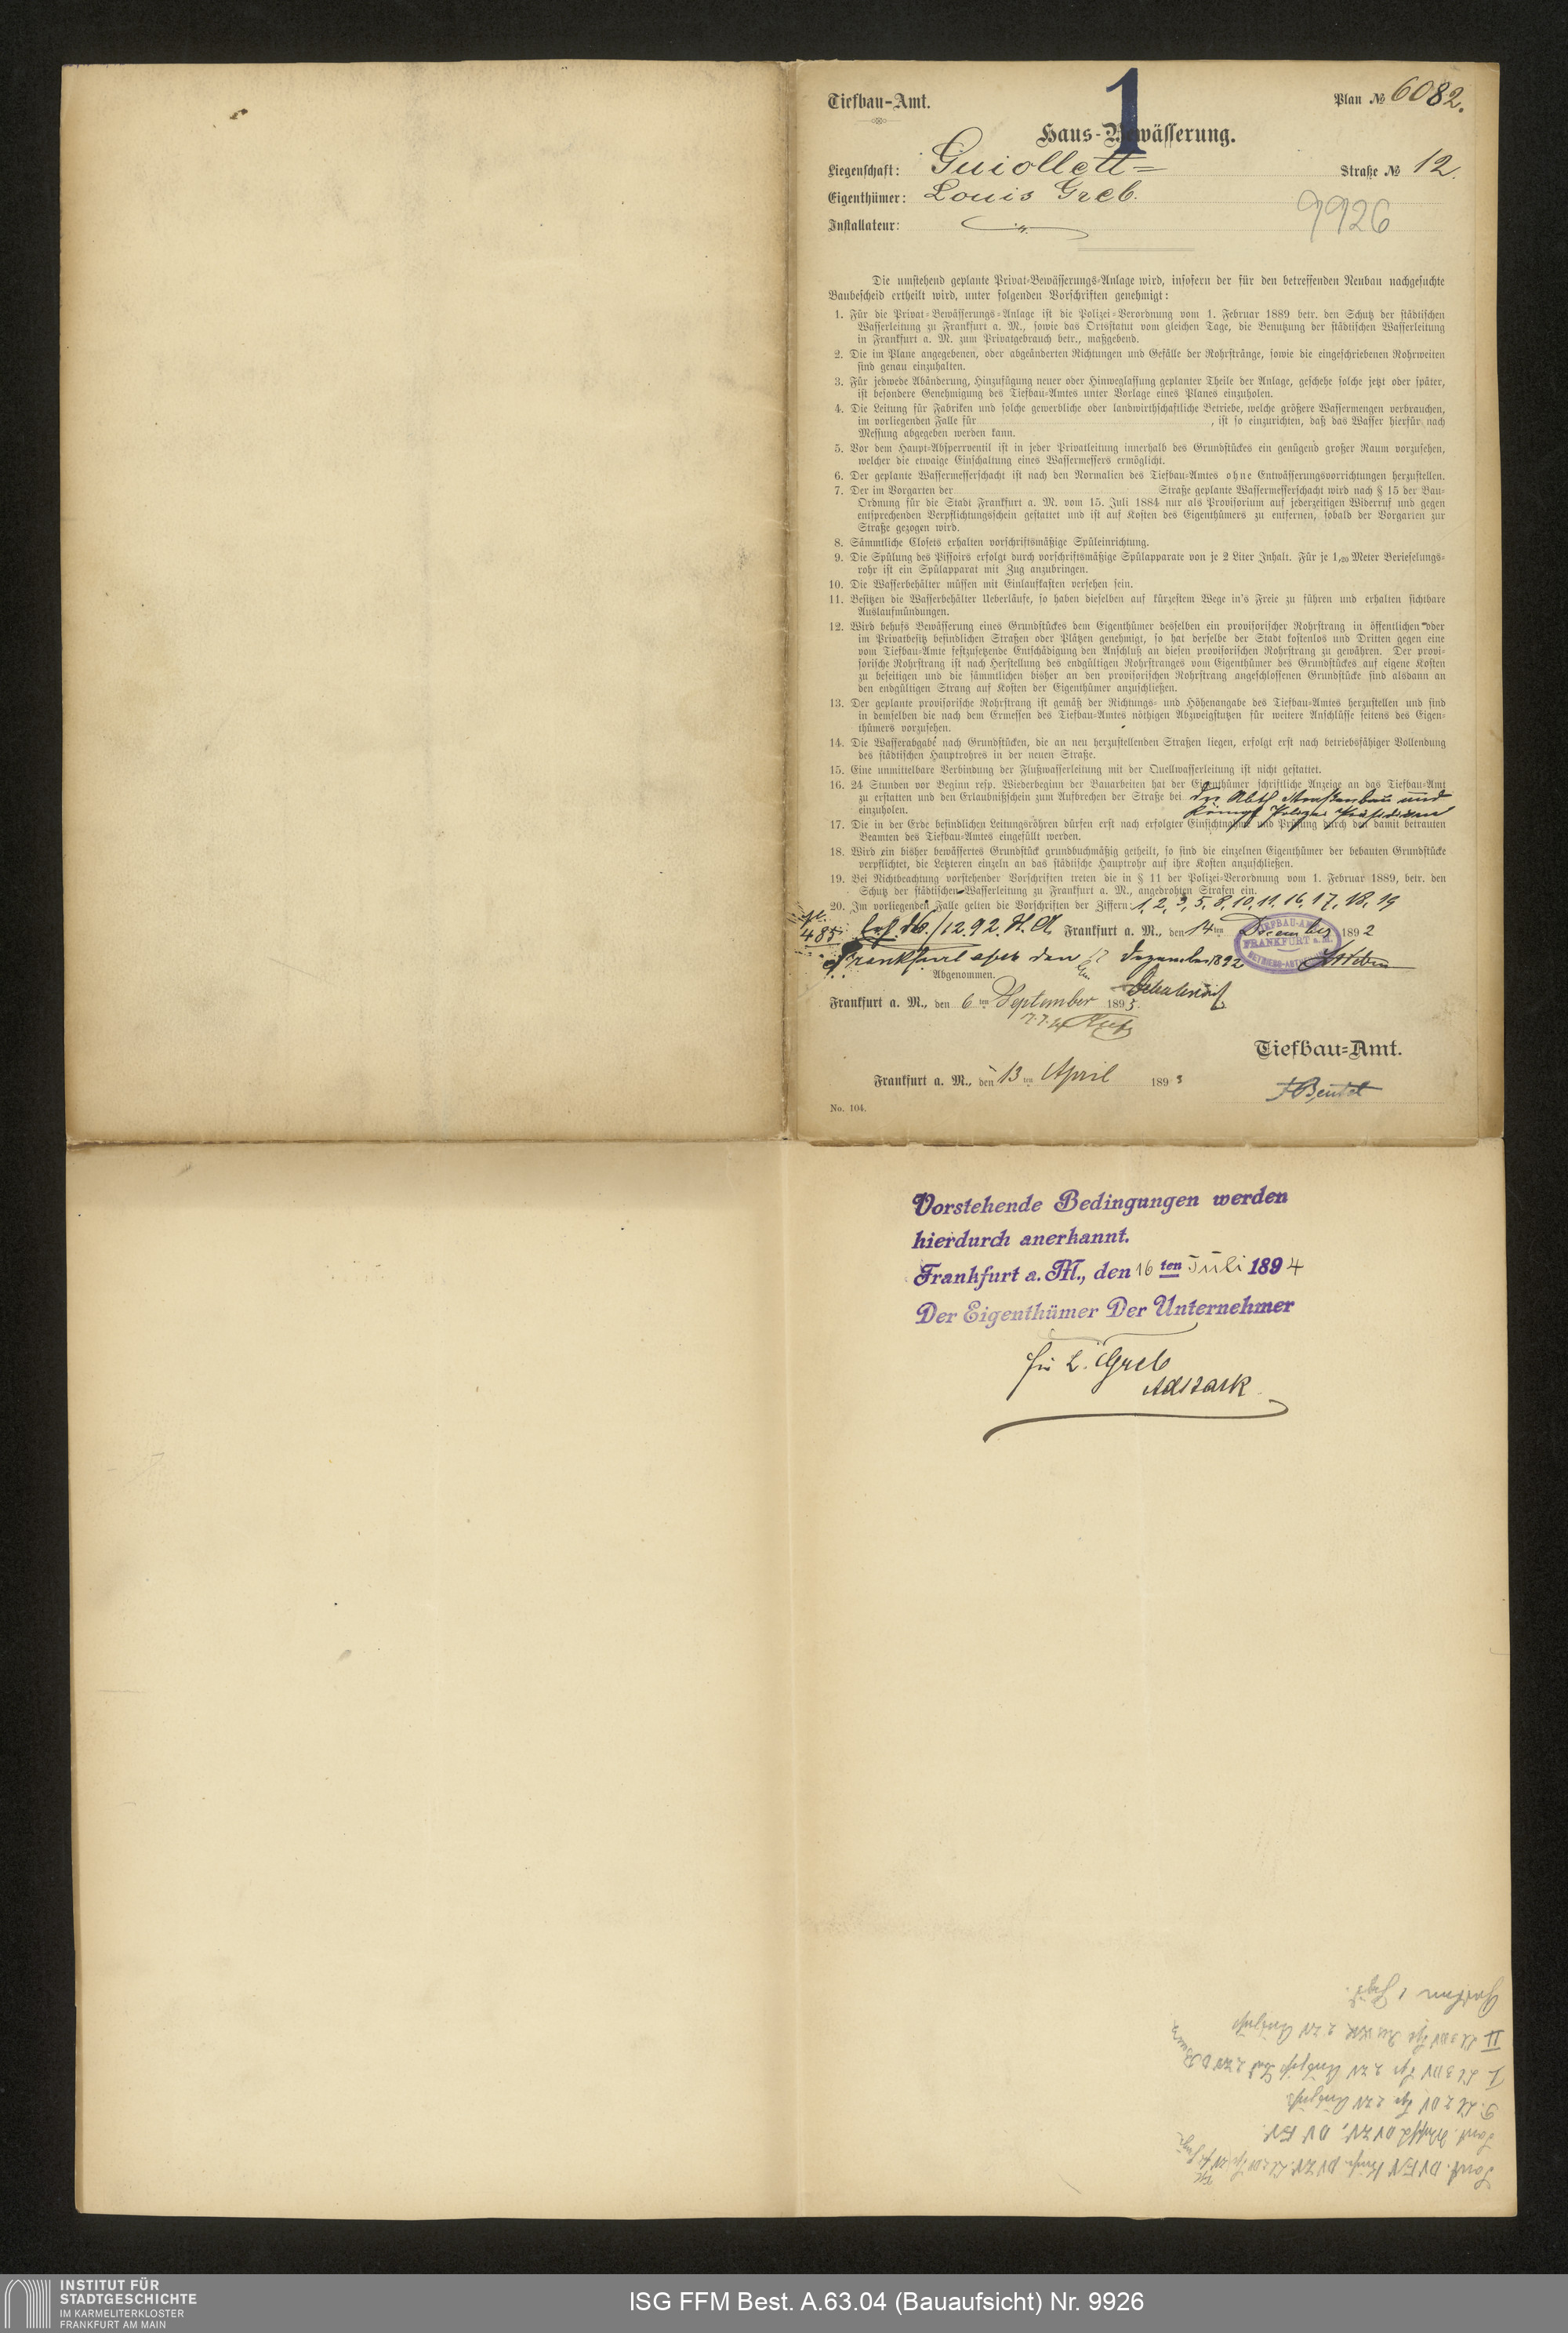 Tiefbau-Amt.
1
Plan № 6082.
Haus-Bewässerung.
Liegenschaft: Guiollett= Straße № 12.
Eigenthümer: Louis Greb.
Installateur:
9926
Die umstehend geplante Privat-Bewässerungs-Anlage wird, insofern der für den betreffenden Neubau nachgesuchte
Baubescheid ertheilt wird, unter folgenden Vorschriften genehmigt:
1. Für die Privat-Bewässerungs-Anlage ist die Polizei-Verordnung vom 1. Februar 1889 betr. den Schutz der städtischen
Wasserleitung zu Frankfurt a. M., sowie das Ortsstatut vom gleichen Tage, die Benutzung der städtischen Wasserleitung
in Frankfurt a. M. zum Privatgebrauch betr., maßgebend.
2. Die im Plane angegebenen, oder abgeänderten Richtungen und Gefälle der Rohrstränge, sowie die eingeschriebenen Rohrweiten
sind genau einzuhalten.
3. Für jedwede Abänderung, Hinzufügung neuer oder Hinweglassung geplanter Theile der Anlage, geschehe solche jetzt oder später,
ist besondere Genehmigung des Tiefbau-Amtes unter Vorlage eines Planes einzuholen.
4. Die Leitung für Fabriken und solche gewerbliche oder landwirthschaftliche Betriebe, welche größere Wassermengen verbrauchen,
im vorliegenden Falle für , ist so einzurichten, daß das Wasser hierfür nach
Messung abgegeben werden kann.
5. Vor dem Haupt-Absperrventil ist in jeder Privatleitung innerhalb des Grundstückes ein genügend großer Raum vorzusehen,
welcher die etwaige Einschaltung eines Wassermessers ermöglicht.
6. Der geplante Wassermesserschacht ist nach den Normalien des Tiefbau-Amtes ohne Entwässerungsvorrichtungen herzustellen.
7. Der im Vorgarten der Straße geplante Wassermesserschacht wird nach § 15 der Bau-
Ordnung für die Stadt Frankfurt a. M. vom 15. Juli 1884 nur als Provisorium auf jederzeitigen Widerruf und gegen
entsprechenden Verpflichtungsschein gestattet und ist auf Kosten des Eigenthümers zu entfernen, sobald der Vorgarten zur
Straße gezogen wird.
8. Sämmtliche Closets erhalten vorschriftsmäßige Spüleinrichtung.
9. Die Spülung des Pissoirs erfolgt durch vorschriftsmäßige Spülapparate von je 2 Liter Inhalt. Für je 1,20 Meter Berieselungs-
rohr ist ein Spülapparat mit Zug anzubringen.
10. Die Wasserbehälter müssen mit Einlaufkasten versehen sein.
11. Besitzen die Wasserbehälter Ueberläufe, so haben dieselben auf kürzestem Wege in's Freie zu führen und erhalten sichtbare
Auslaufmündungen.
12. Wird behufs Bewässerung eines Grundstückes dem Eigenthümer desselben ein provisorischer Rohrstrang in öffentlichen oder
im Privatbesitz befindlichen Straßen oder Plätzen genehmigt, so hat derselbe der Stadt kostenlos und Dritten gegen eine
vom Tiefbau-Amte festzusetzende Entschädigung den Anschluß an diesen provisorischen Rohrstrang zu gewähren. Der provi-
sorische Rohrstrang ist nach Herstellung des endgültigen Rohrstranges vom Eigenthümer des Grundstückes auf eigene Kosten
zu beseitigen und die sämmtlichen bisher an den provisorischen Rohrstrang angeschlossenen Grundstücke sind alsdann an
den endgültigen Strang auf Kosten der Eigenthümer anzuschließen.
13. Der geplante provisorische Rohrstrang ist gemäß der Richtungs- und Höhenangabe des Tiefbau-Amtes herzustellen und sind
in demselben die nach dem Ermessen des Tiefbau-Amtes nöthigen Abzweigstutzen für weitere Anschlüsse seitens des Eigen-
thümers vorzusehen.
14. Die Wasserabgabe nach Grundstücken, die an neu herzustellenden Straßen liegen, erfolgt erst nach betriebsfähiger Vollendung
des städtischen Hauptrohres in der neuen Straße.
15. Eine unmittelbare Verbindung der Flußwasserleitung mit der Quellwasserleitung ist nicht gestattet.
16. 24 Stunden vor Beginn resp. Wiederbeginn der Bauarbeiten hat der Eigenthümer schriftliche Anzeige an das Tiefbau-Amt
zu erstatten und den Erlaubnißschein zum Aufbrechen der Straße bei der Abth. Straßenbau und
einzuholen. Königl Polizei Präsidium
17. Die in der Erde befindlichen Leitungsröhren dürfen erst nach erfolgter Einsichtnahme und Prüfung durch den damit betrauten
Beamten des Tiefbau-Amtes eingefüllt werden.
18. Wird ein bisher bewässertes Grundstück grundbuchmäßig getheilt, so sind die einzelnen Eigenthümer der bebauten Grundstücke
verpflichtet, die Letzteren einzeln an das städtische Hauptrohr auf ihre Kosten anzuschließen.
19. Bei Nichtbeachtung vorstehender Vorschriften treten die in § 11 der Polizei-Verordnung vom 1. Februar 1889, betr. den
Schutz der städtischen Wasserleitung zu Frankfurt a. M., angedrohten Strafen ein.
20. Im vorliegenden Falle gelten die Vorschriften der Ziffern: 1, 2, 3, 5, 8, 10, 11, 16, 17, 18, 19
485 /12.92. H.A. Frankfurt a. M., den 14ten Dezember 1892
TIEFBAU-AMT
FRANKFURT a. M.
BETRIEBS-ABTH
Frankfurt den Dezember 1892
Abgenommen.
Frankfurt a. M., den 6ten September 1895.
Tiefbau-Amt.
Frankfurt a. M., den 13ten April 1893
No. 104.
Vorstehende Bedingungen werden
hierdurch anerkannt.
Frankfurt a. M., den 16 ten Juli 1894
Der Eigenthümer Der Unternehmer
für L. Greb
INSTITUT FÜR
STADTGESCHICHTE
IM KARMELITERKLOSTER
FRANKFURT AM MAIN
ISG FFM Best. A.63.04 (Bauaufsicht) Nr. 9926